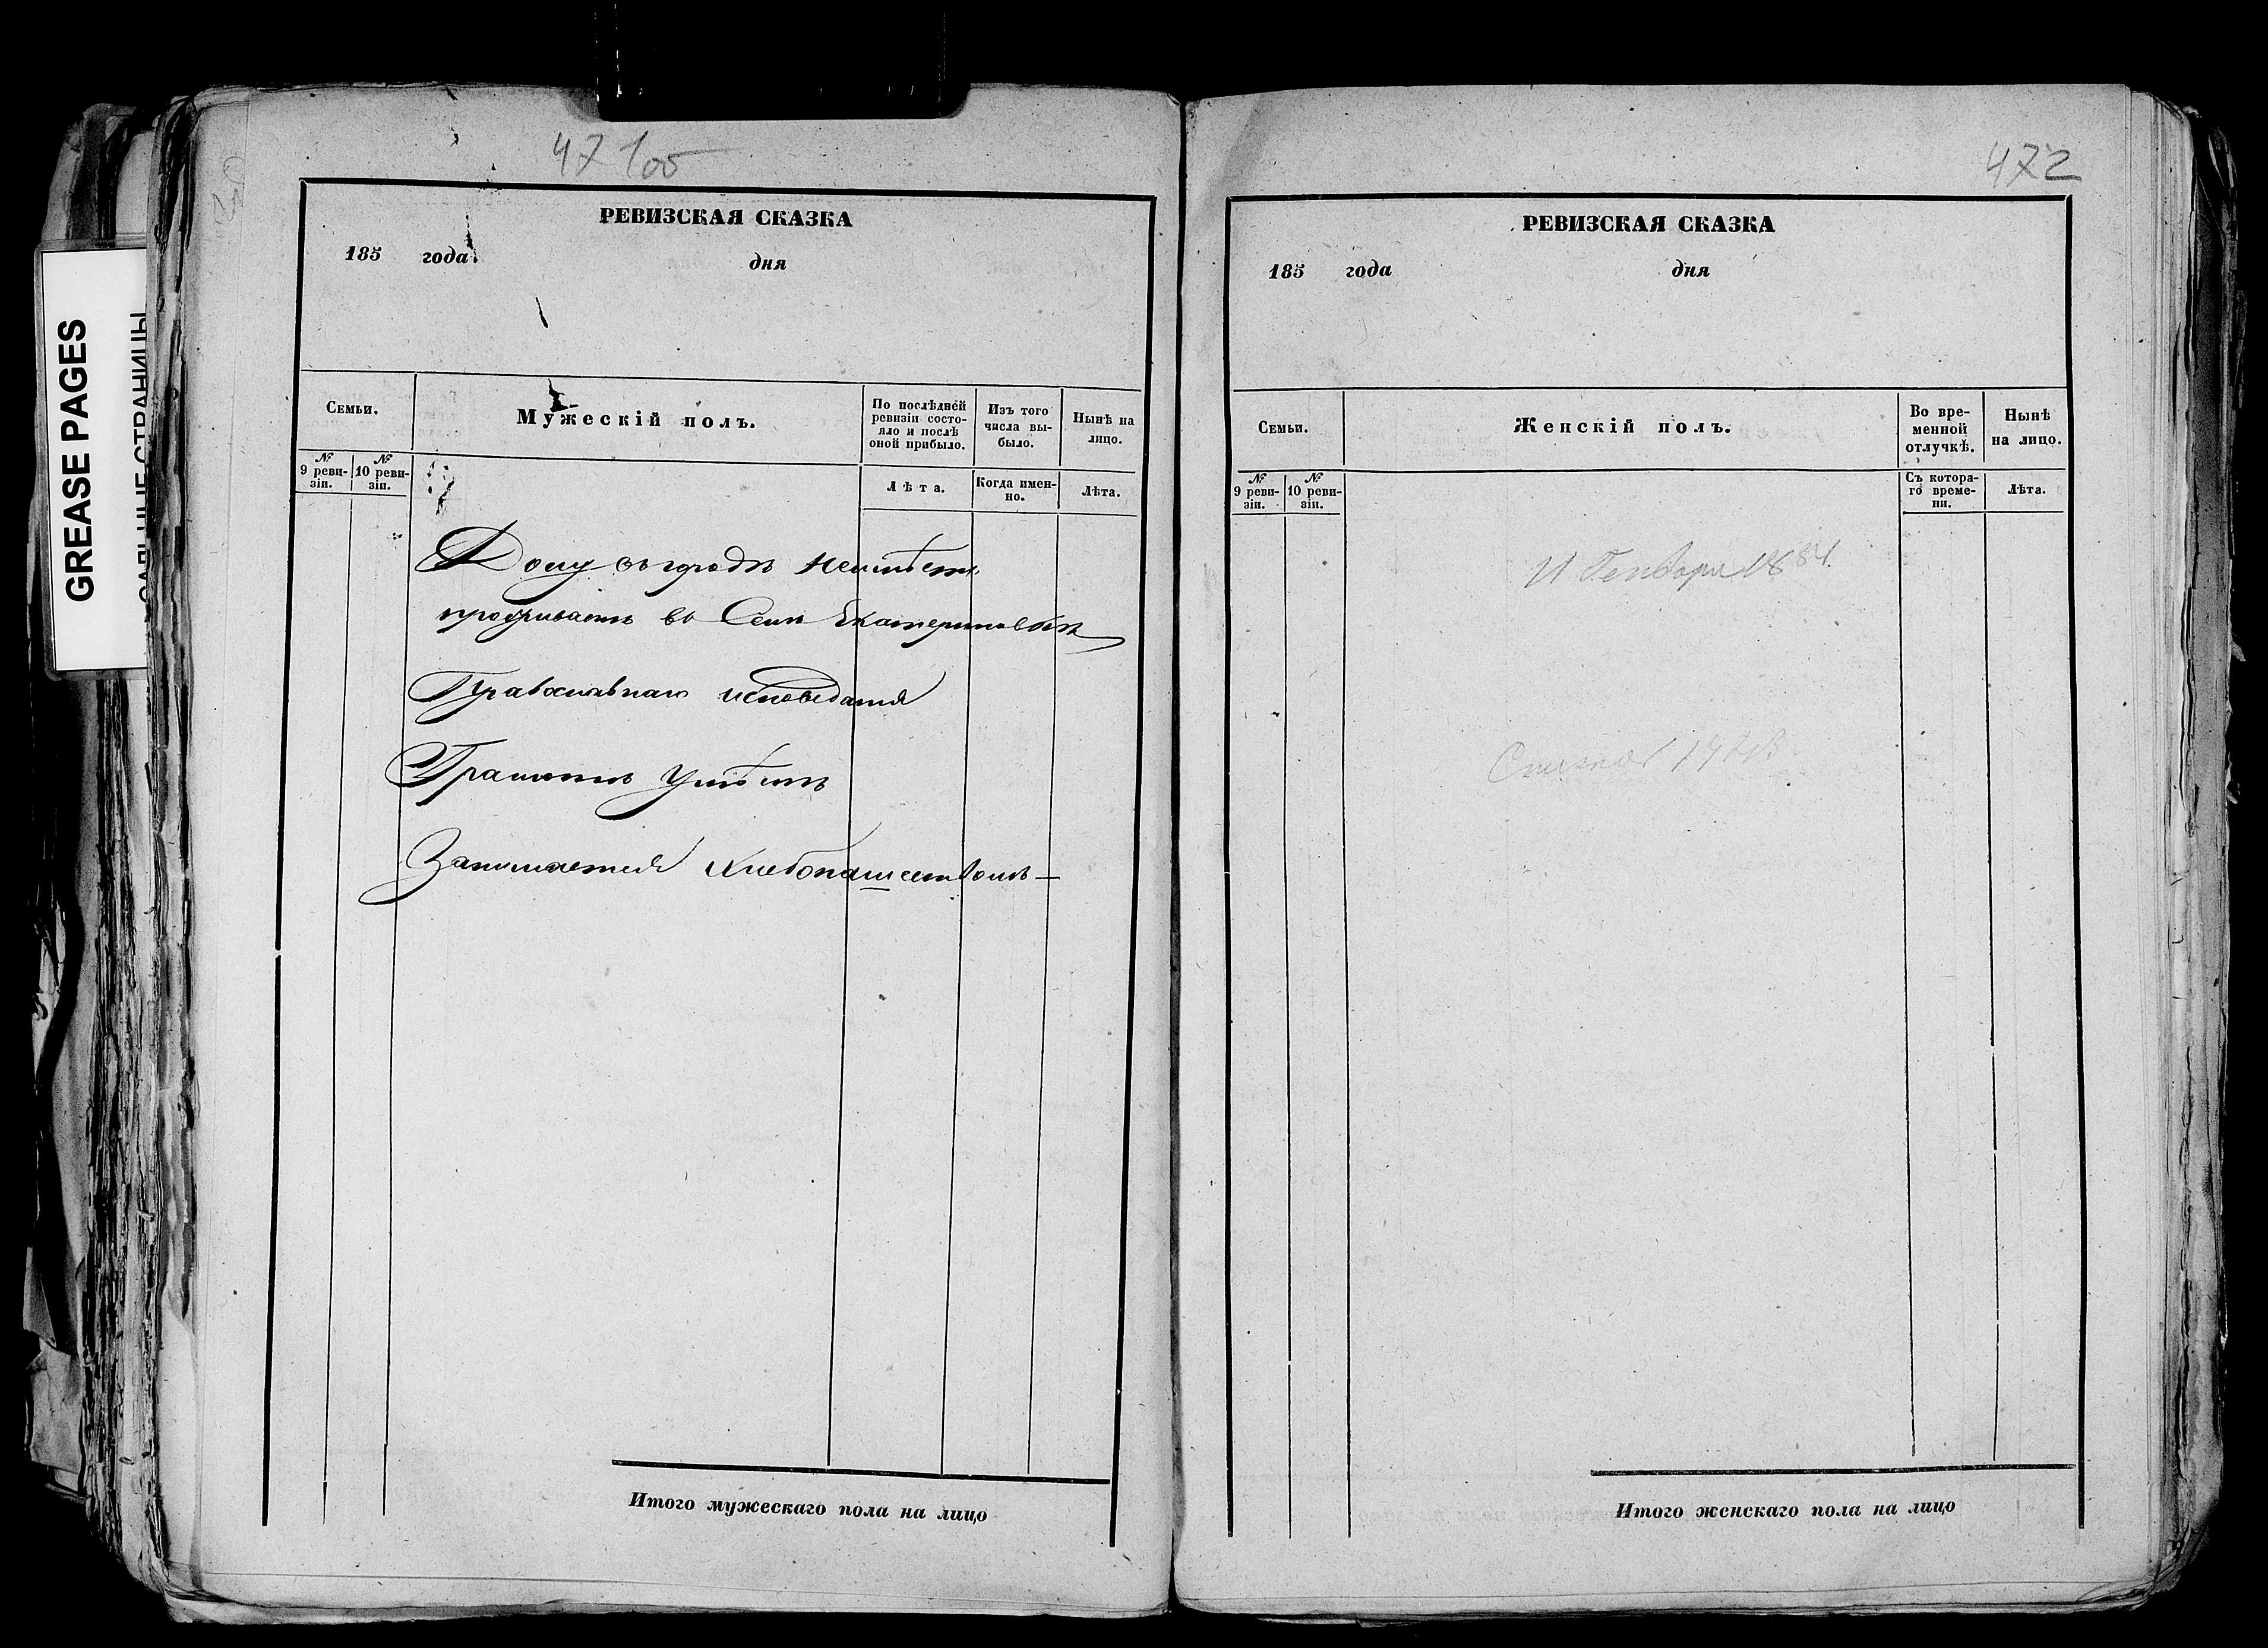 GREASE PAGES
САЛЬНЫЕ СТРАНИЦЫ
47 1об
РЕВИЗСКАЯ СКАЗКА
185 года дня
Семьи.
Мужескій полъ.
По послѣдней ревизіи состо-
яло и послѣ оной прибыло.
Изъ того числа вы-
было.
Нынѣ на лицо.
№ 9 реви-
зіи.
№ 10 реви-
зіи.
Лѣта.
Когда имен-
но.
Лѣта.
Дому въ городѣ неимѣетъ
проживаетъ въ Селѣ Екатериновкѣ
Православнаго исповѣданія
Грамотѣ Умѣетъ
Занимается Хлебопашествомъ —
Итого мужескаго пола на лицо
472
РЕВИЗСКАЯ СКАЗКА
185 года дня
Семьи.
Женскій полъ.
Во вре-
менной
отлучкѣ.
Нынѣ
на лицо.
№ 9 реви-
зіи.
№ 10 реви-
зіи.
Съ котора-
го време-
ни.
Лѣта.
11 Генваря 1884.
Итого женскаго пола на лицо